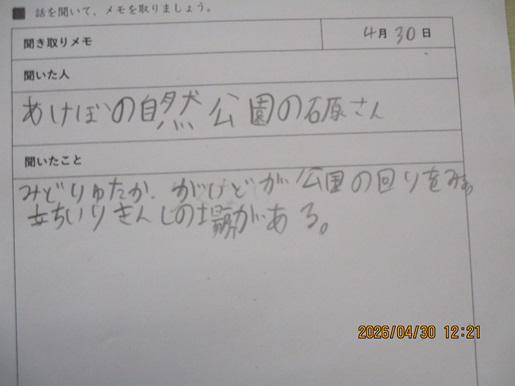 ■ 話を聞いて、メモを取りましょう。
聞き取りメモ 4月30日
聞いた人
あけぼの自然公園の石原さん
聞いたこと
みどりゆたか、がけどが公園の回りを
立ちいりきんしの場がある。
2026/04/30 12:21